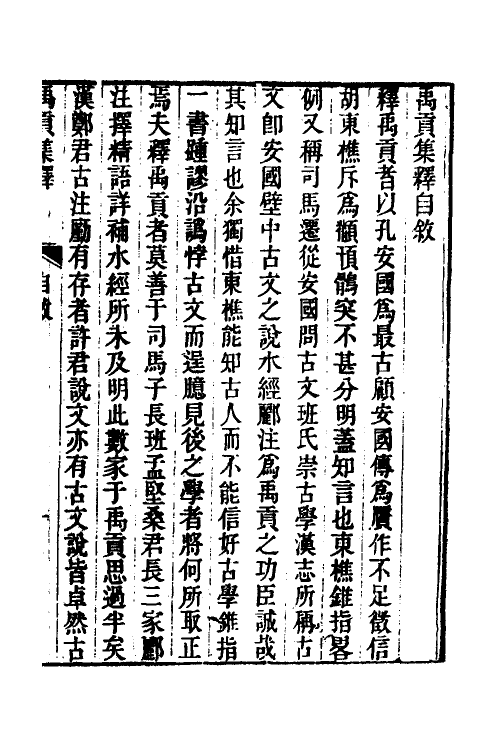 禹貢集釋自敘
釋禹貢者以孔安國爲最古顧安國傳爲贗作不足徵信
胡東樵斥爲顢頇鶻突不甚分明蓋知言也東樵錐指畧
例又稱司馬遷從安國問古文班氏崇古學漢志所稱古
文卽安國壁中古文之說水經酈注爲禹貢之功臣誠哉
其知言也余獨惜東樵能知古人而不能信好古學錐指
一書踵謬沿譌悖古文而逞臆見後之學者將何所取正
焉夫釋禹貢者莫善于司馬子長班孟堅桑君長三家酈
注擇精語詳補水經所未及明此數家于禹貢思過半矣
漢鄭君古注勵有存者許君說文亦有古文說皆卓然古
禹貢集釋 自敘 一